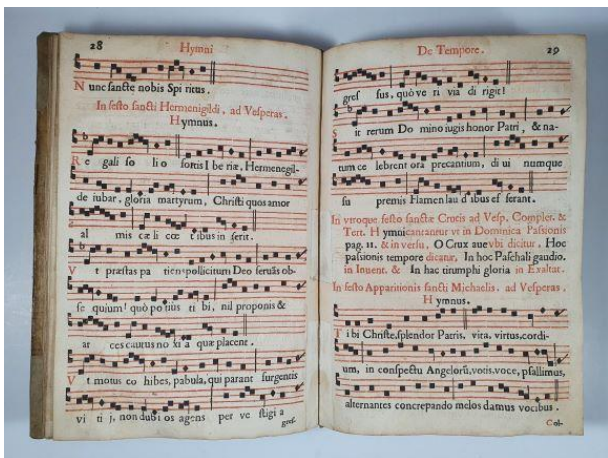 28 Hymni
N unc sancte nobis Spi ritus.
In festo sancti Hermenigildi, ad Vesperas,
Hymnus.
R e gali so li o fortis I be riæ, Hermenegil-
de iubar, gloria martyrum, Christi quos amor
al mis cæ li cœ t ibus in serit.
V t præstas pa tiens pollicitum Deo seruās ob-
se quium! quò po tius ti bi, nil proponis &
ar ces cautus no xi a quæ placent.
V t motus co hibes, pabula, qui parant surgentis
vi ti j, non dubi os agens per ve stigi a
gres-
De Tempore. 29
gres sus, quò ve ri via di rigit!
S it rerum Do mino iugis honor Patri, & na-
tum ce lebrent ora precantium, di ui numque
su premis Flamen lau d ibus ef ferant.
In vtroque festo sanctæ Crucis ad Vesp. Complet. &
Tert. H ymni cantantur vt in Dominica Passionis
pag. 11. & in versu, O Crux aue vbi dicitur, Hoc
passionis tempore dicatur, In hoc Paschali gaudio.
in Inuent. & In hac triumphi gloria in Exaltat.
In festo Apparitionis sancti Michaelis. ad Vesperas,
H ymnus.
T i bi Christe, splendor Patris, vita, virtus, cordi-
um, in conspectu Angelorū, votis, voce, psallimus,
alternantes concrepando melos damus vocibus.